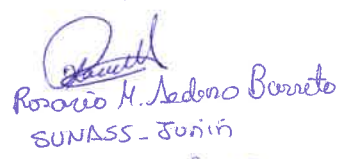 Rosario M. Sedano Barreto
SUNASS - Junín